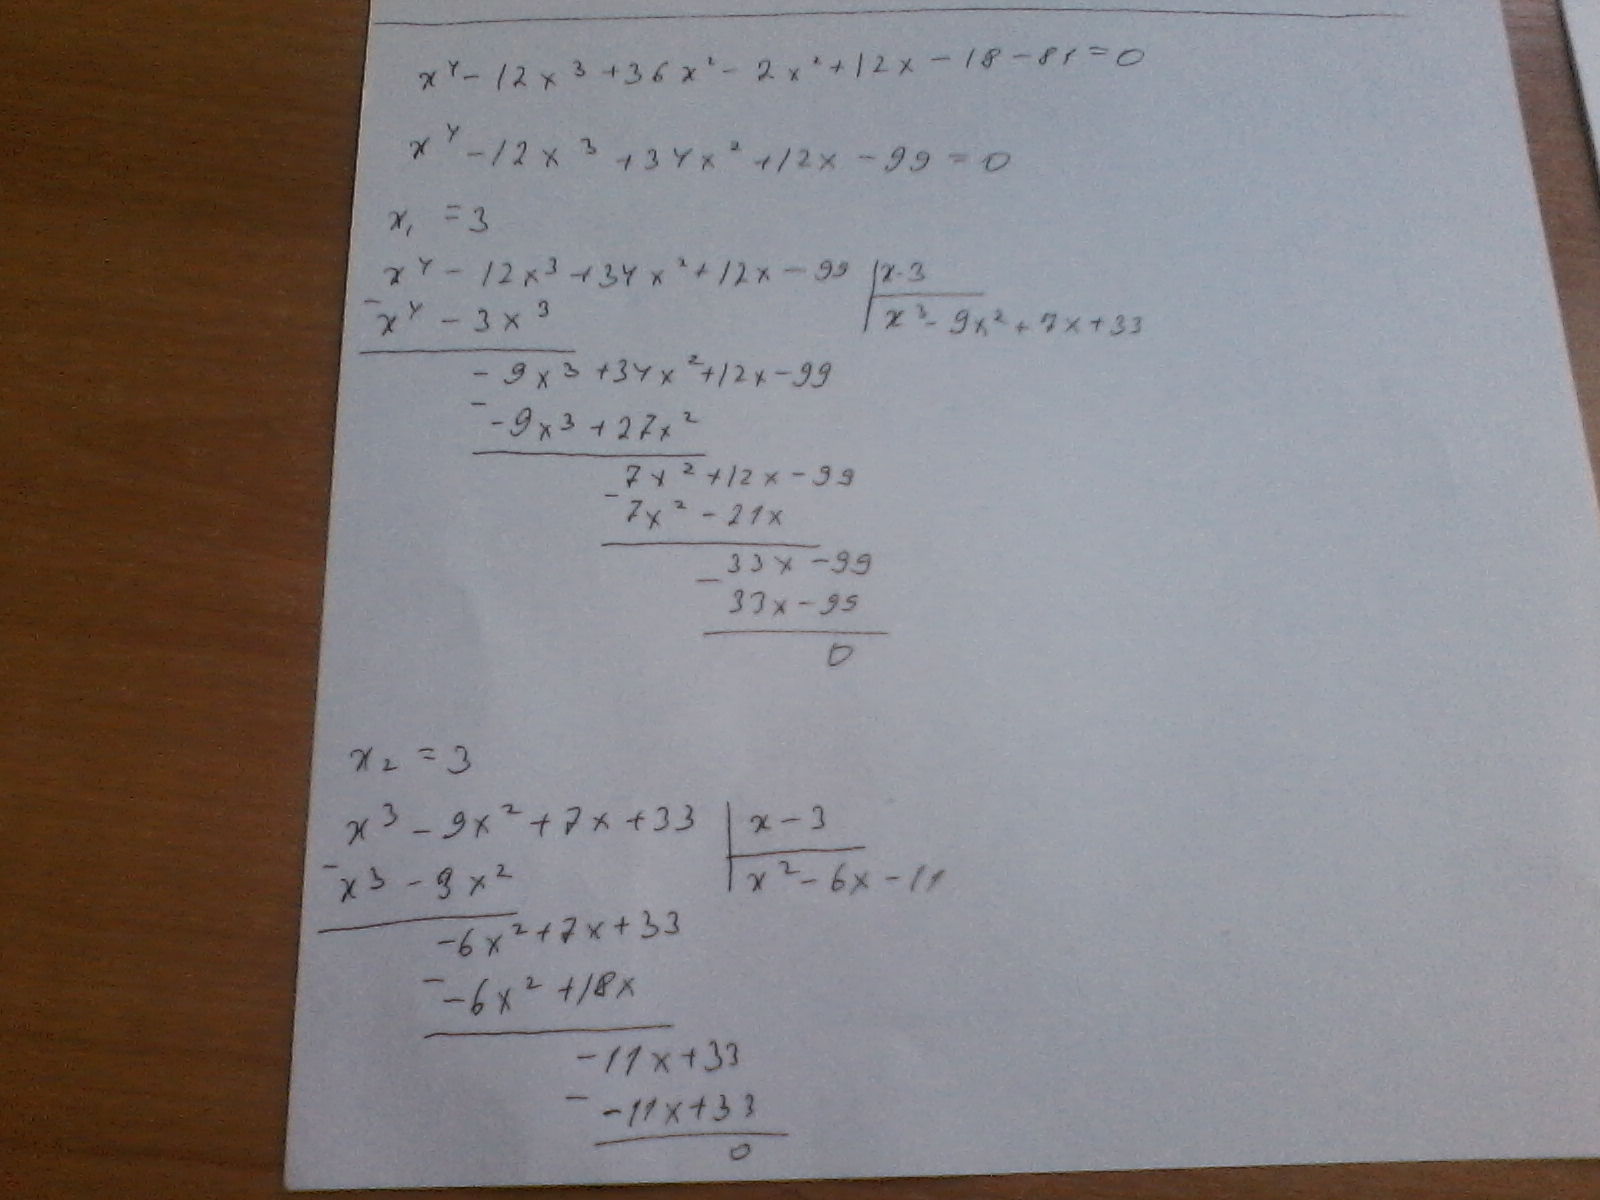 x⁴ - 12x³ + 36x² - 2x² + 12x - 18 - 81 = 0
x⁴ - 12x³ + 34x² + 12x - 99 = 0
x₁ = 3
x⁴ - 12x³ + 34x² + 12x - 99 | x - 3
- x⁴ - 3x³ | x³ - 9x² + 7x + 33
- 9x³ + 34x² + 12x - 99
- - 9x³ + 27x²
7x² + 12x - 99
- 7x² - 21x
33x - 99
- 33x - 99
0
x₂ = 3
x³ - 9x² + 7x + 33 | x - 3
- x³ - 3x² | x² - 6x - 11
- 6x² + 7x + 33
- - 6x² + 18x
- 11x + 33
- - 11x + 33
0